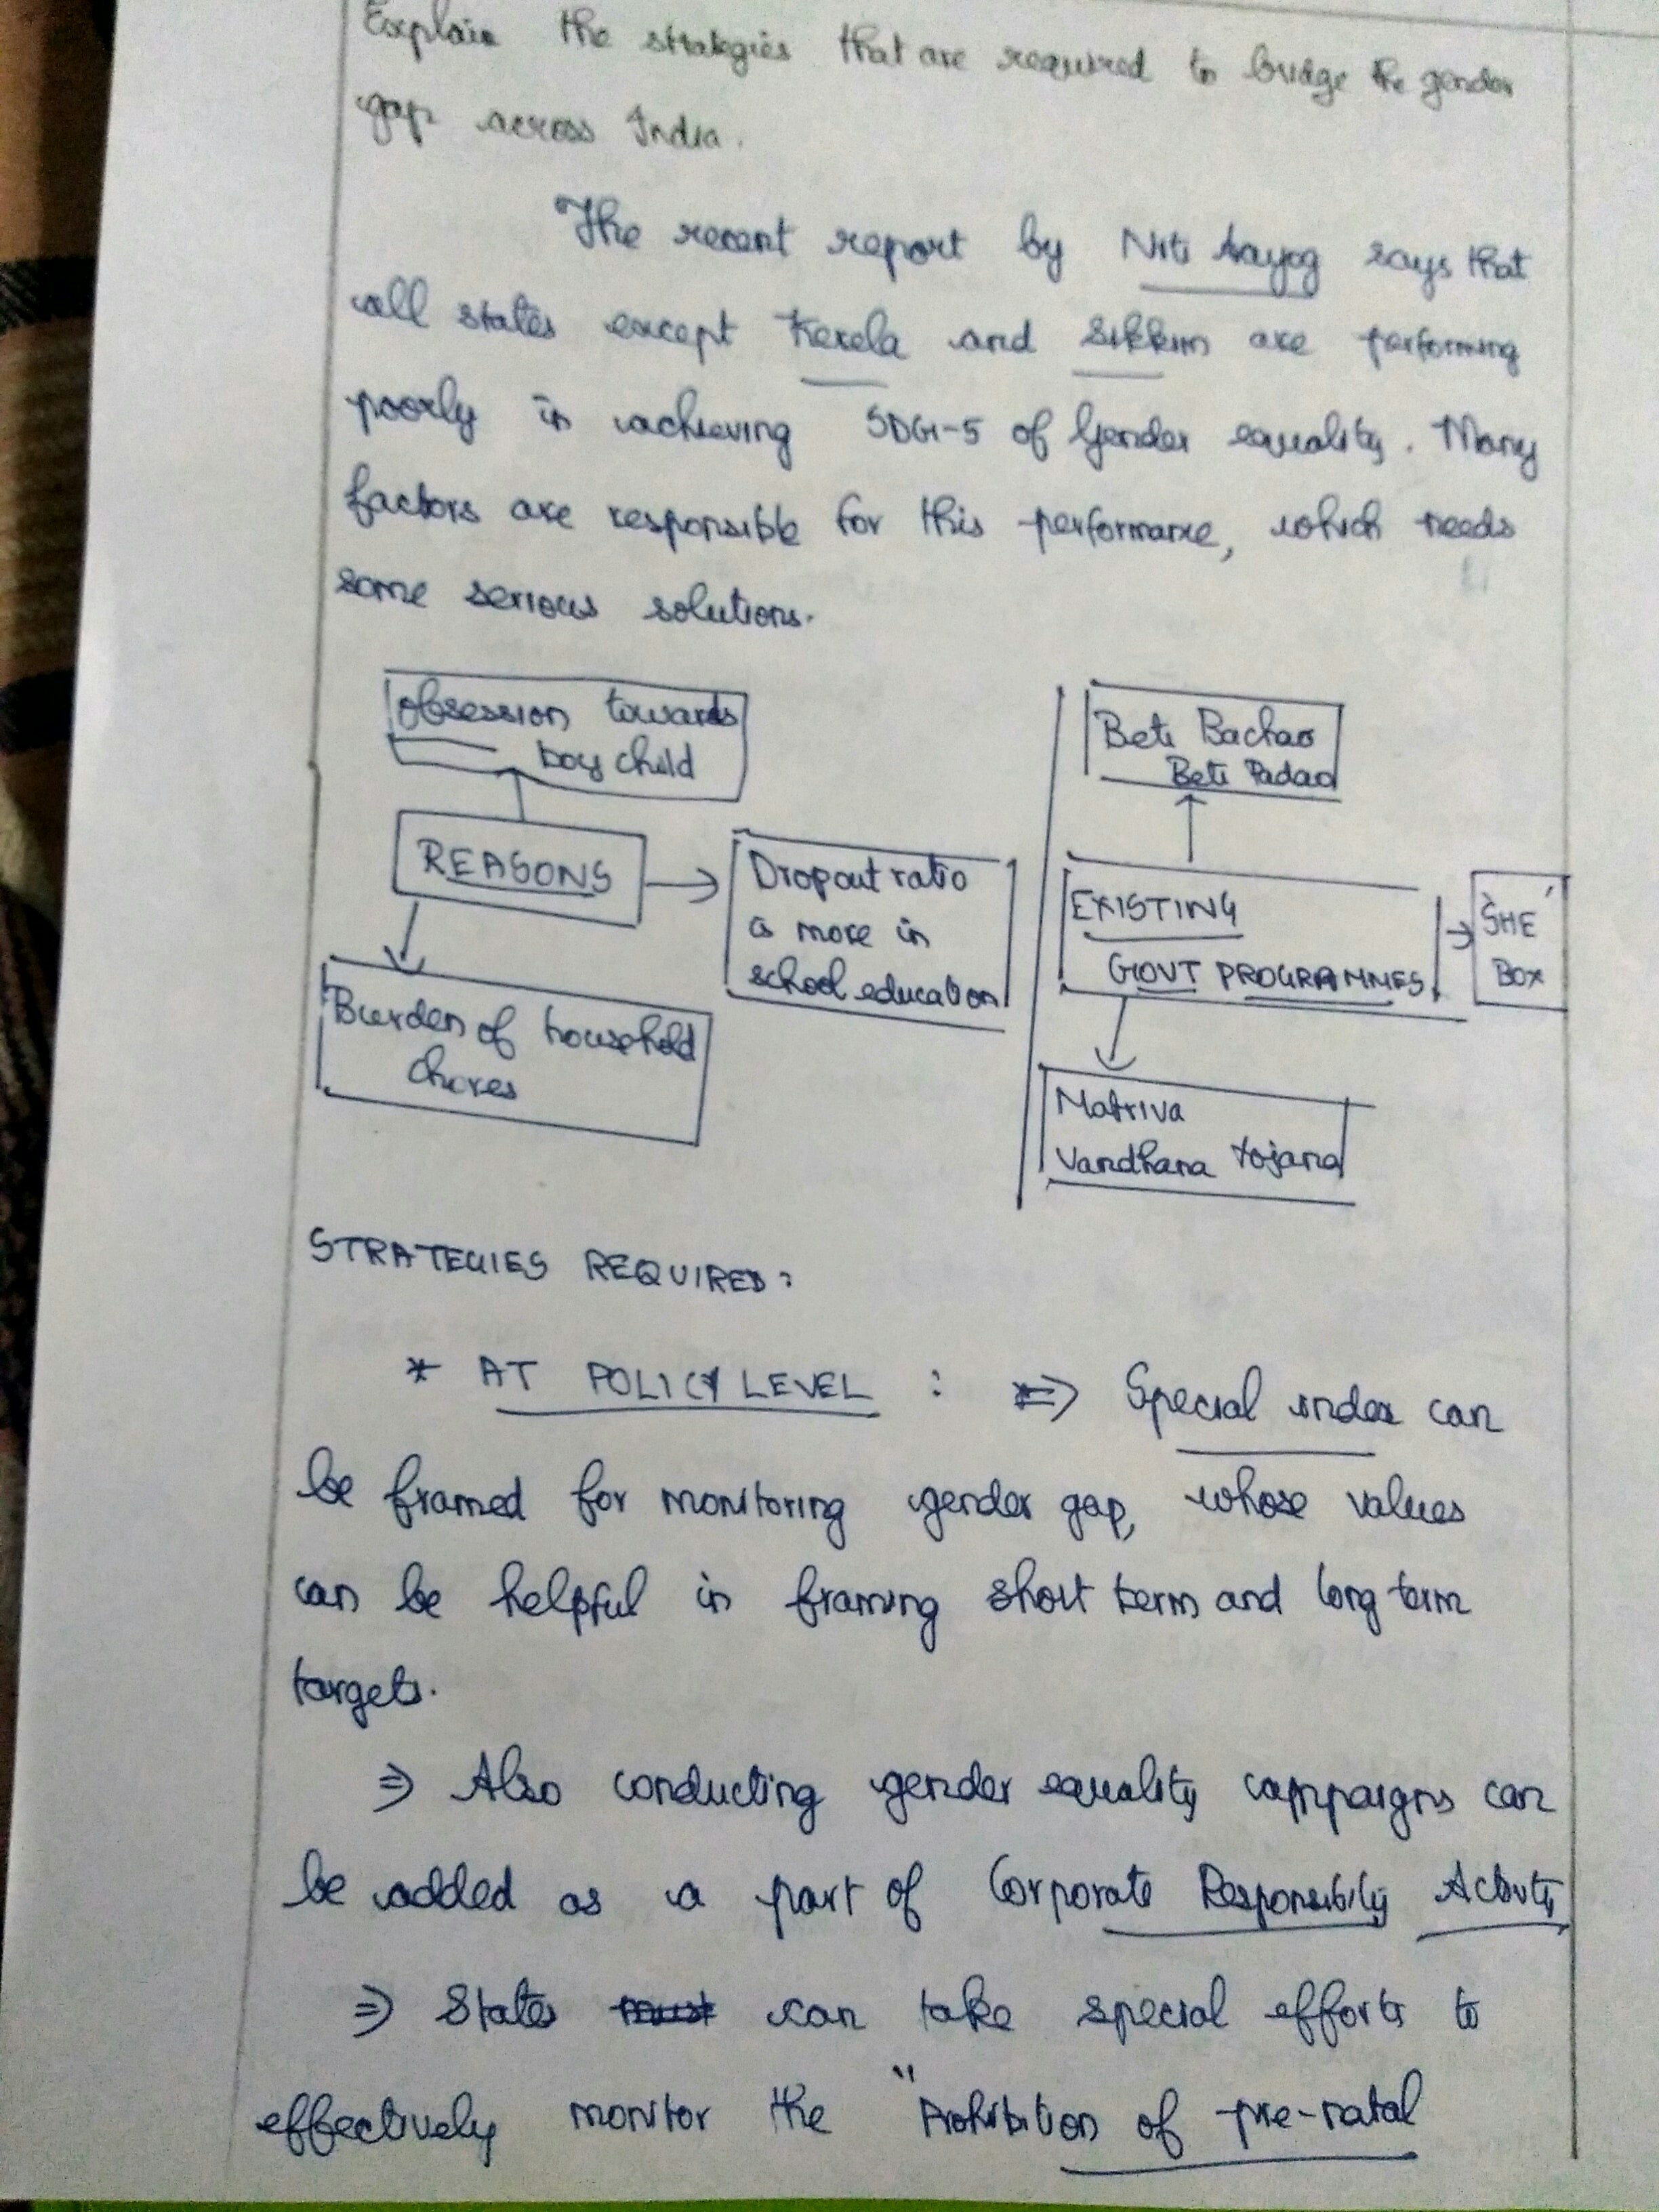 Explain the strategies that are required to bridge the gender
gap across India.
The recent report by Niti Aayog says that
all states except Kerela and Sikkim are performing
poorly in achieving SDG-5 of Gender equality. Many
factors are responsible for this performance, which needs
some serious solutions.
Obsession towards
boy child
REASONS
Dropout ratio
is more in
school education
Burden of household
chores
Beti Bachao
Beti Padao
EXISTING
GOVT PROGRAMMES
'SHE'
BOX
Matriva
Vandhana Yojana
STRATEGIES REQUIRED:
* AT POLICY LEVEL : ⇒ Special index can
be framed for monitoring gender gap, whose values
can be helpful in framing short term and long term
targets.
⇒ Also conducting gender equality campaigns can
be added as a part of Corporate Responsibility Activity
⇒ States must can take special efforts to
effectively monitor the "Prohibition of pre-natal